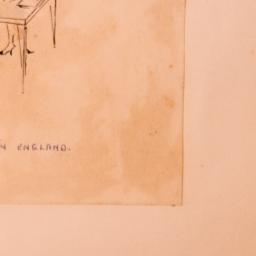 N ENGLAND.